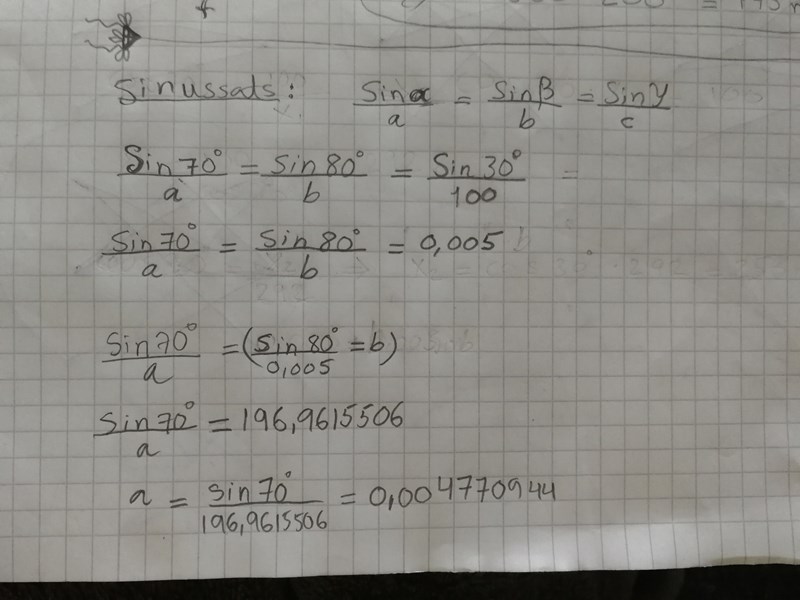 Sinussats: Sinα/a = Sinβ/b = Sinγ/c
Sin70°/a = Sin80°/b = Sin30°/100 =
Sin70°/a = Sin80°/b = 0,005
Sin70°/a = (Sin80°/0,005 = b)
Sin70°/a = 196,9615506
a = sin70°/196,9615506 = 0,004770944